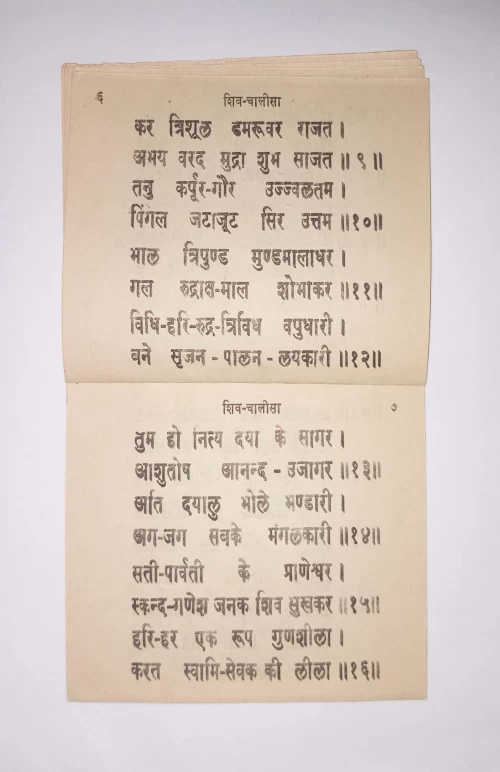 ६
शिव-चालीसा
कर त्रिशूल डमरूवर राजत ।
अभय वरद मुद्रा शुभ साजत ॥ ९ ॥
तनु कर्पूर-गौर उज्ज्वलतम ।
पिंगल जटाजूट सिर उत्तम ॥१०॥
भाल त्रिपुण्ड मुण्डमालाधर ।
गल रुद्राक्ष-माल शोभाकर ॥११॥
विधि-हरि-रुद्र-त्रिविध वपुधारी ।
बने सृजन - पालन - लयकारी ॥१२॥
शिव-चालीसा
७
तुम हो नित्य दया के सागर ।
आशुतोष आनन्द - उजागर ॥१३॥
अति दयालु भोले भण्डारी ।
अग-जग सबके मंगलकारी ॥१४॥
सती-पार्वती के प्राणेश्वर ।
स्कन्द-गणेश जनक शिव सुखकर ॥१५॥
हरि-हर एक रूप गुणशीला ।
करत स्वामि-सेवक की लीला ॥१६॥